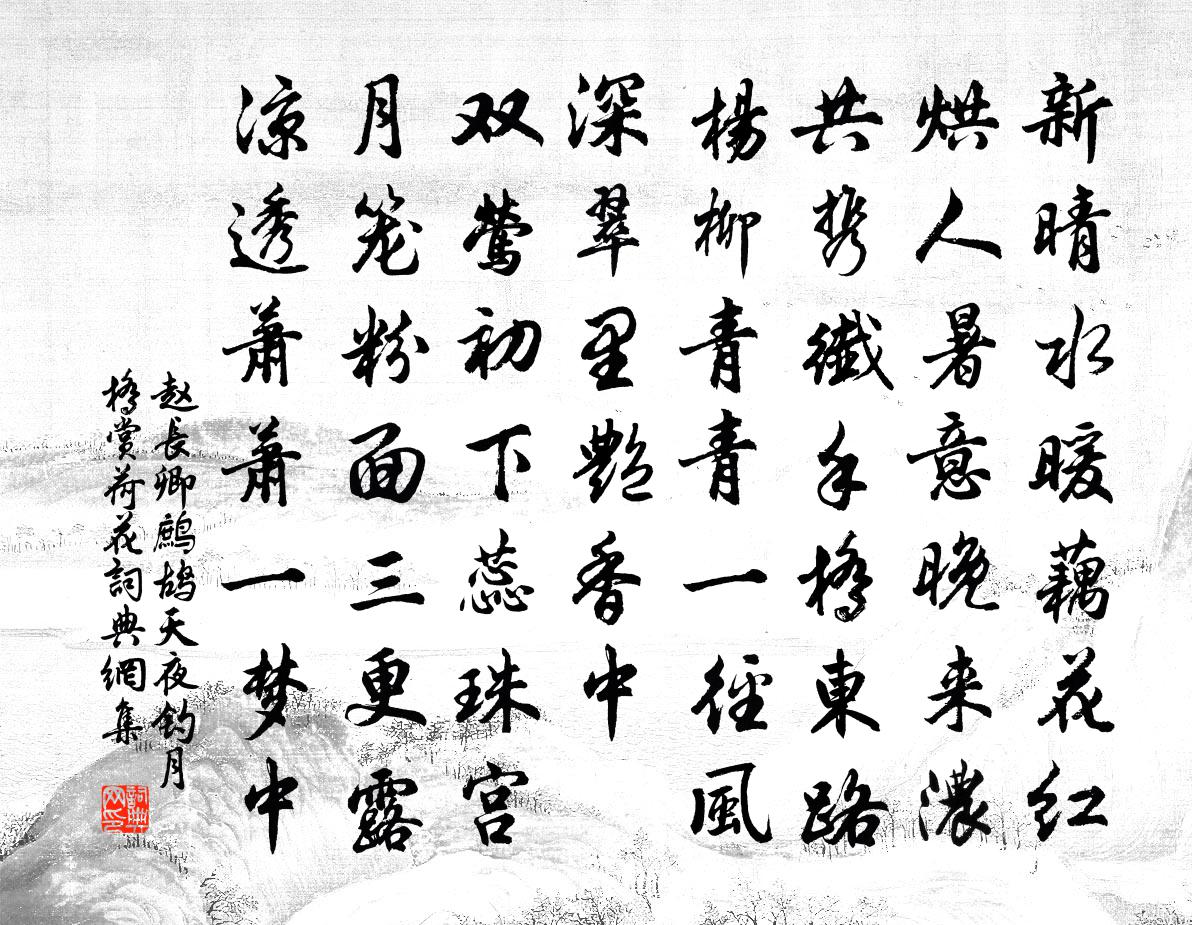 新晴水暖藕花红
烘人暑意晚来濃
共携纖手橋東路
楊柳青青一徑風
深翠里艷香中
双鶯初下蕊珠宫
月笼粉面三更露
凉透萧萧一梦中
赵長卿鷓鴣天夜钓月
橋赏荷花詞典網集
詞典网印